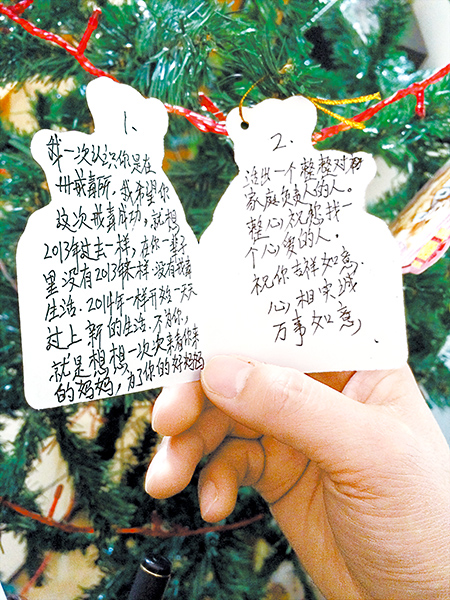 1.
我一次认识你是在
州戒毒所,我希望你
这次戒毒成功,就想
2013年过去一样,在你一辈子
里没有2013年一样没有戒毒
生活.2014年一样开始一天天
过上新的生活.不为你,
就是想想一次次来看你来
的妈妈,为了你的好妈妈
2.
送出一个整整对
家庭负责人的人.
整心祝愿找一
个心爱的人.
祝你吉祥如意.
心相实成
万事如意,